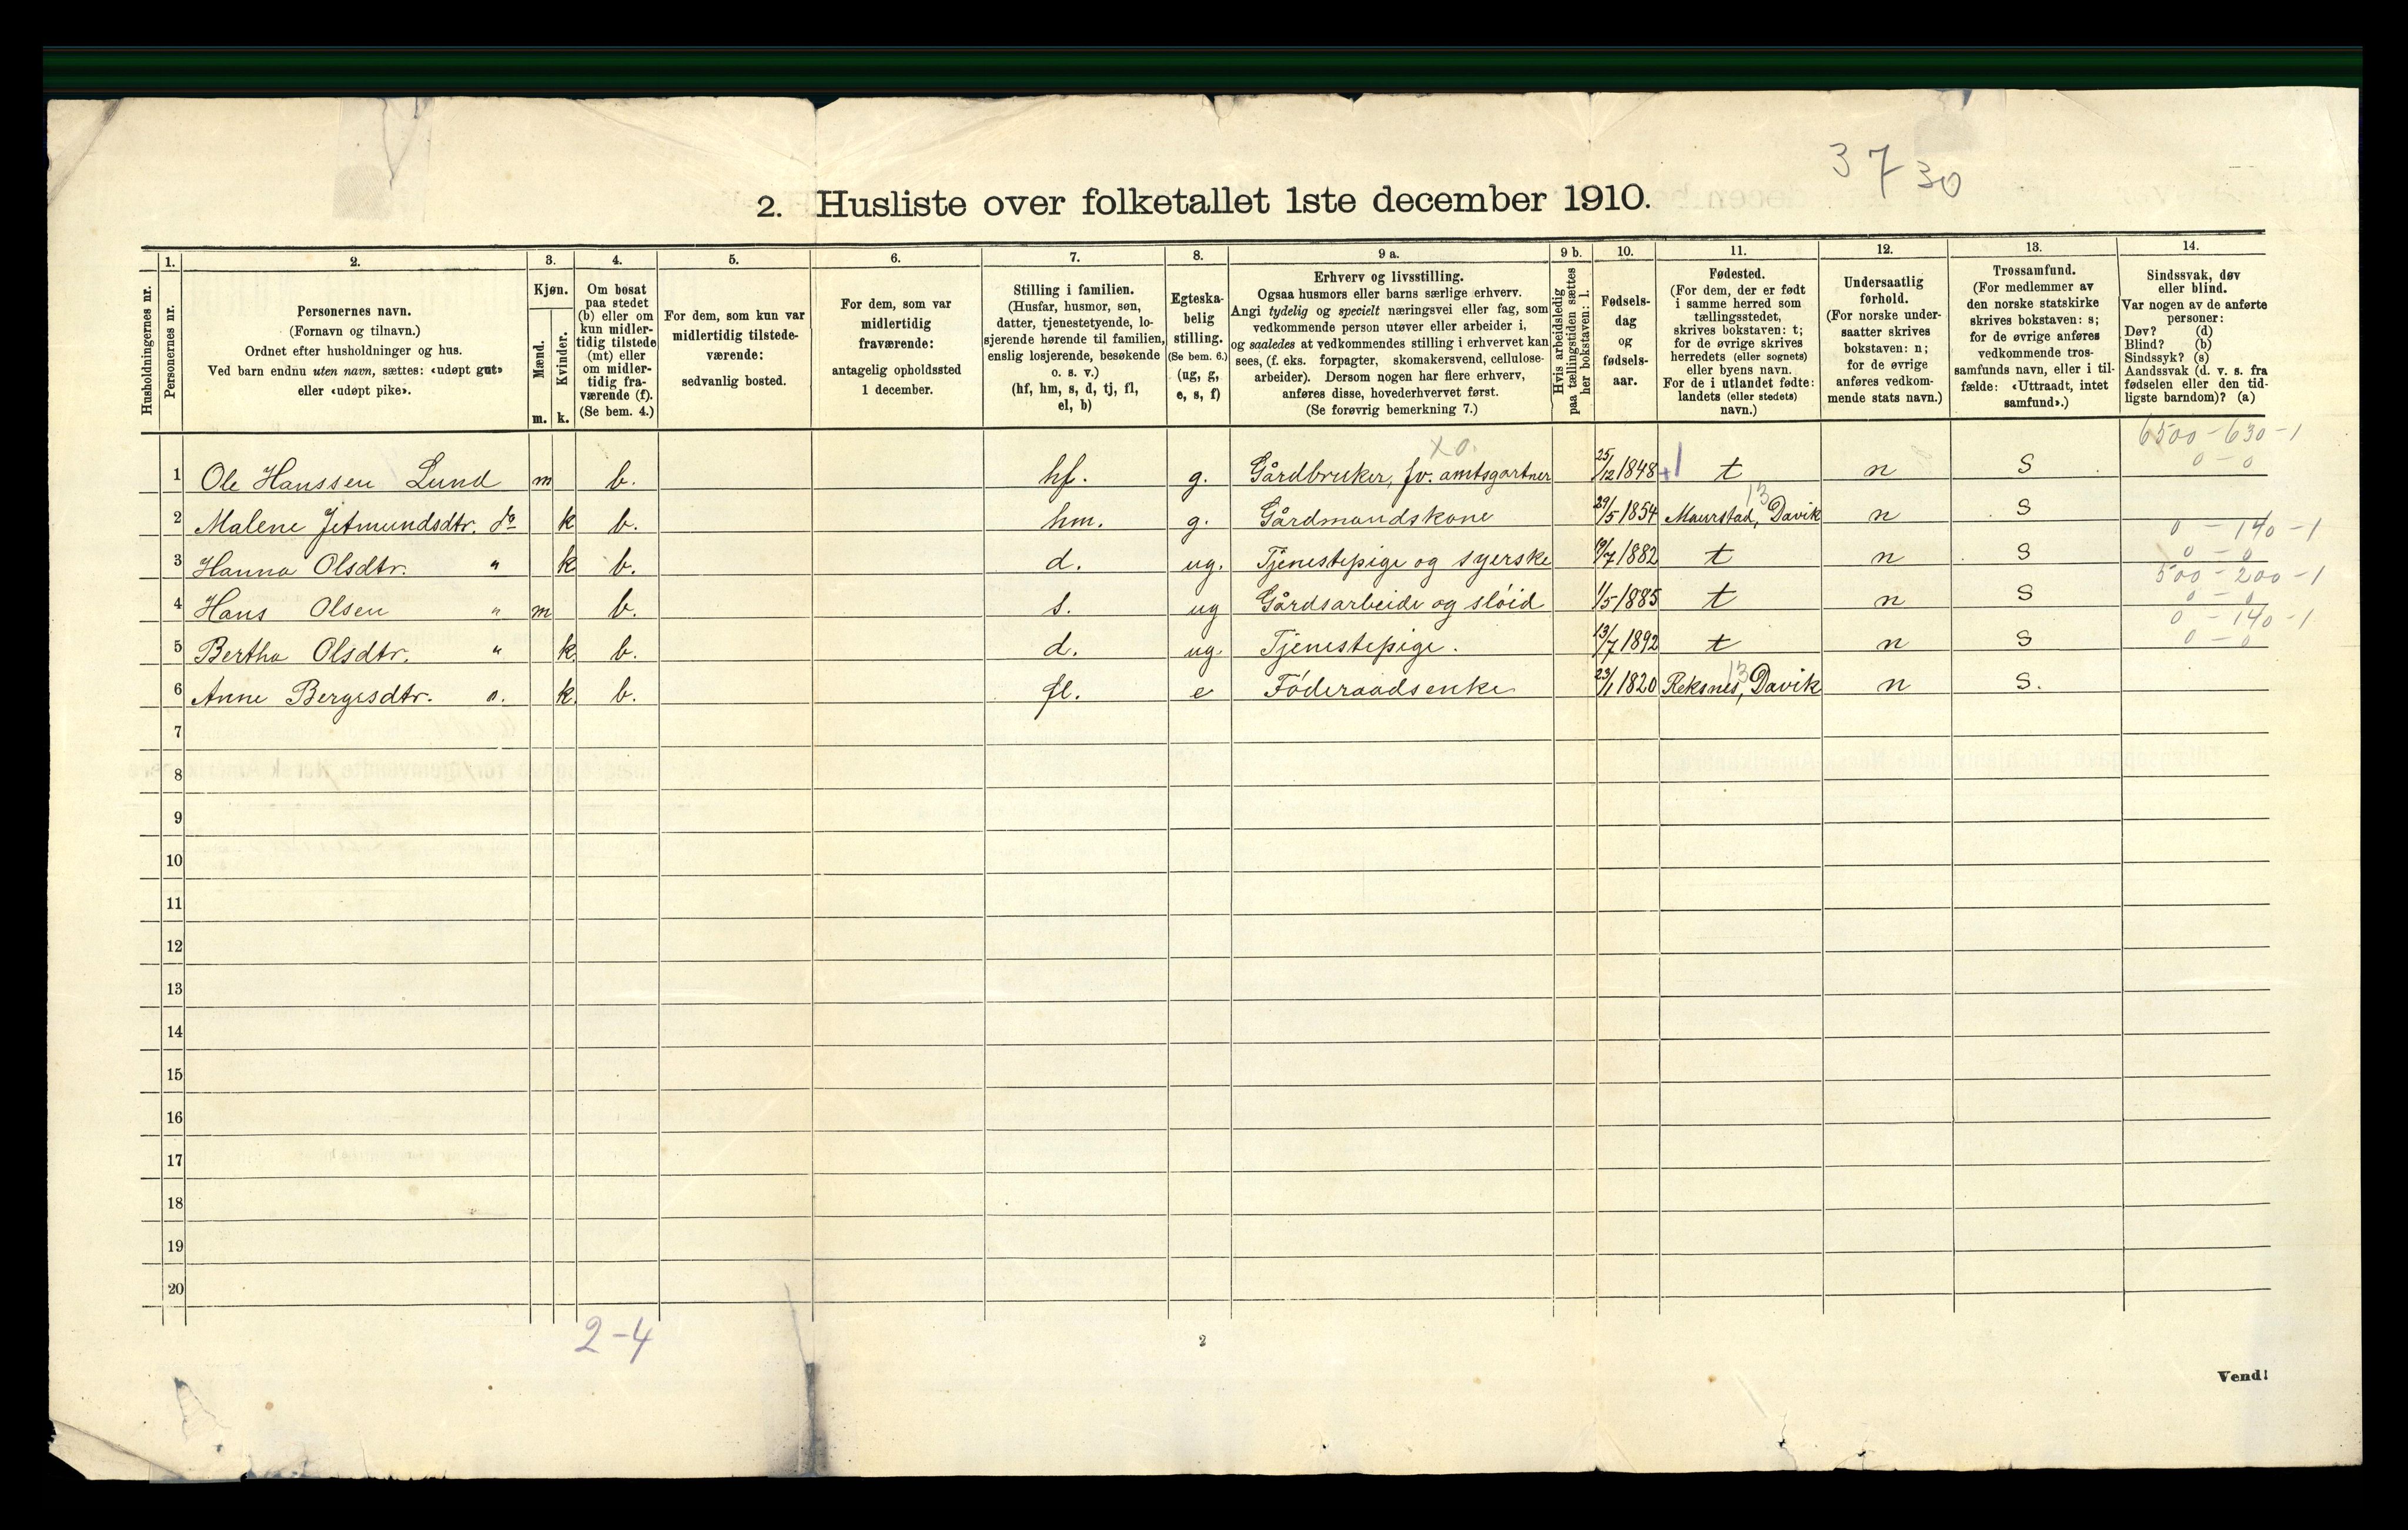 3 7 30
2. Husliste over folketallet 1ste december 1910.
Husholdningernes nr.
1. Personernes nr.
2. Personernes navn. (Fornavn og tilnavn.) Ordnet efter husholdninger og hus. Ved barn endnu uten navn, sættes: «udøpt gut» eller «udøpt pike».
3. Kjøn. Mænd. m. Kvinder. k.
4. Om bosat paa stedet (b) eller om kun midler-tidig tilstede (mt) eller om midler-tidig fra-værende (f). (Se bem. 4.)
5. For dem, som kun var midlertidig tilstede-værende: sedvanlig bosted.
6. For dem, som var midlertidig fraværende: antagelig opholdssted 1 december.
7. Stilling i familien. (Husfar, husmor, søn, datter, tjenestetyende, lo-sjerende hørende til familien, enslig losjerende, besøkende o. s. v.) (hf, hm, s, d, tj, fl, el, b)
8. Egteska-belig stilling. (Se bem. 6.) (ug, g, e, s, f)
9 a. Erhverv og livsstilling. Ogsaa husmors eller barns særlige erhverv. Angi tydelig og specielt næringsvei eller fag, som vedkommende person utøver eller arbeider i, og saaledes at vedkommendes stilling i erhvervet kan sees, (f. eks. forpagter, skomakersvend, cellulose-arbeider). Dersom nogen har flere erhverv, anføres disse, hovederhvervet først. (Se forøvrig bemerkning 7.)
9 b. Hvis arbeidsledig paa tællingstiden sættes her bokstaven: l.
10. Fødsels-dag og fødsels-aar.
11. Fødested. (For dem, der er født i samme herred som tællingsstedet, skrives bokstaven: t; for de øvrige skrives herredets (eller sognets) eller byens navn. For de i utlandet fødte: landets (eller stedets) navn.)
12. Undersaatlig forhold. (For norske under-saatter skrives bokstaven: n; for de øvrige anføres vedkom-mende stats navn.)
13. Trossamfund. (For medlemmer av den norske statskirke skrives bokstaven: s; for de øvrige anføres vedkommende tros-samfunds navn, eller i til-fælde: «Uttraadt, intet samfund».)
14. Sindssvak, døv eller blind. Var nogen av de anførte personer: Døv? (d) Blind? (b) Sindssyk? (s) Aandssvak (d. v. s. fra fødselen eller den tid-ligste barndom)? (a)
X 0. 6500 - 630 - 1
1 Ole Hanssen Lund m b. hf. g. Gårdbruker, fv. amtsgartner 25/12 1848 +1 t n S 0 - 0
2 Malene Jetmundsdtr. do k b. hm. g. Gårdmandskone 29/5 1854 13 Maurstad, Davik n S
0 - 140 - 1
3 Hanna Olsdtr. " k b. d. ug. Tjenestepige og syerske 9/7 1882 t n S 0 - 0
500 - 200 - 1
4 Hans Olsen " m b. s. ug Gårdsarbeide og slöid 1/5 1885 t n S 0 - 0
0 - 140 - 1
5 Bertha Olsdtr. " k. b. d. ug. Tjenestepige. 13/7 1892 t n S 0 - 0
6 Anne Bergesdtr. k. b. fl. e Föderaadsenke 23/1 1820 13 Reksnes, Davik n S.
7
8
9
10
11
12
13
14
15
16
17
18
19
20
2-4
2
Vend!